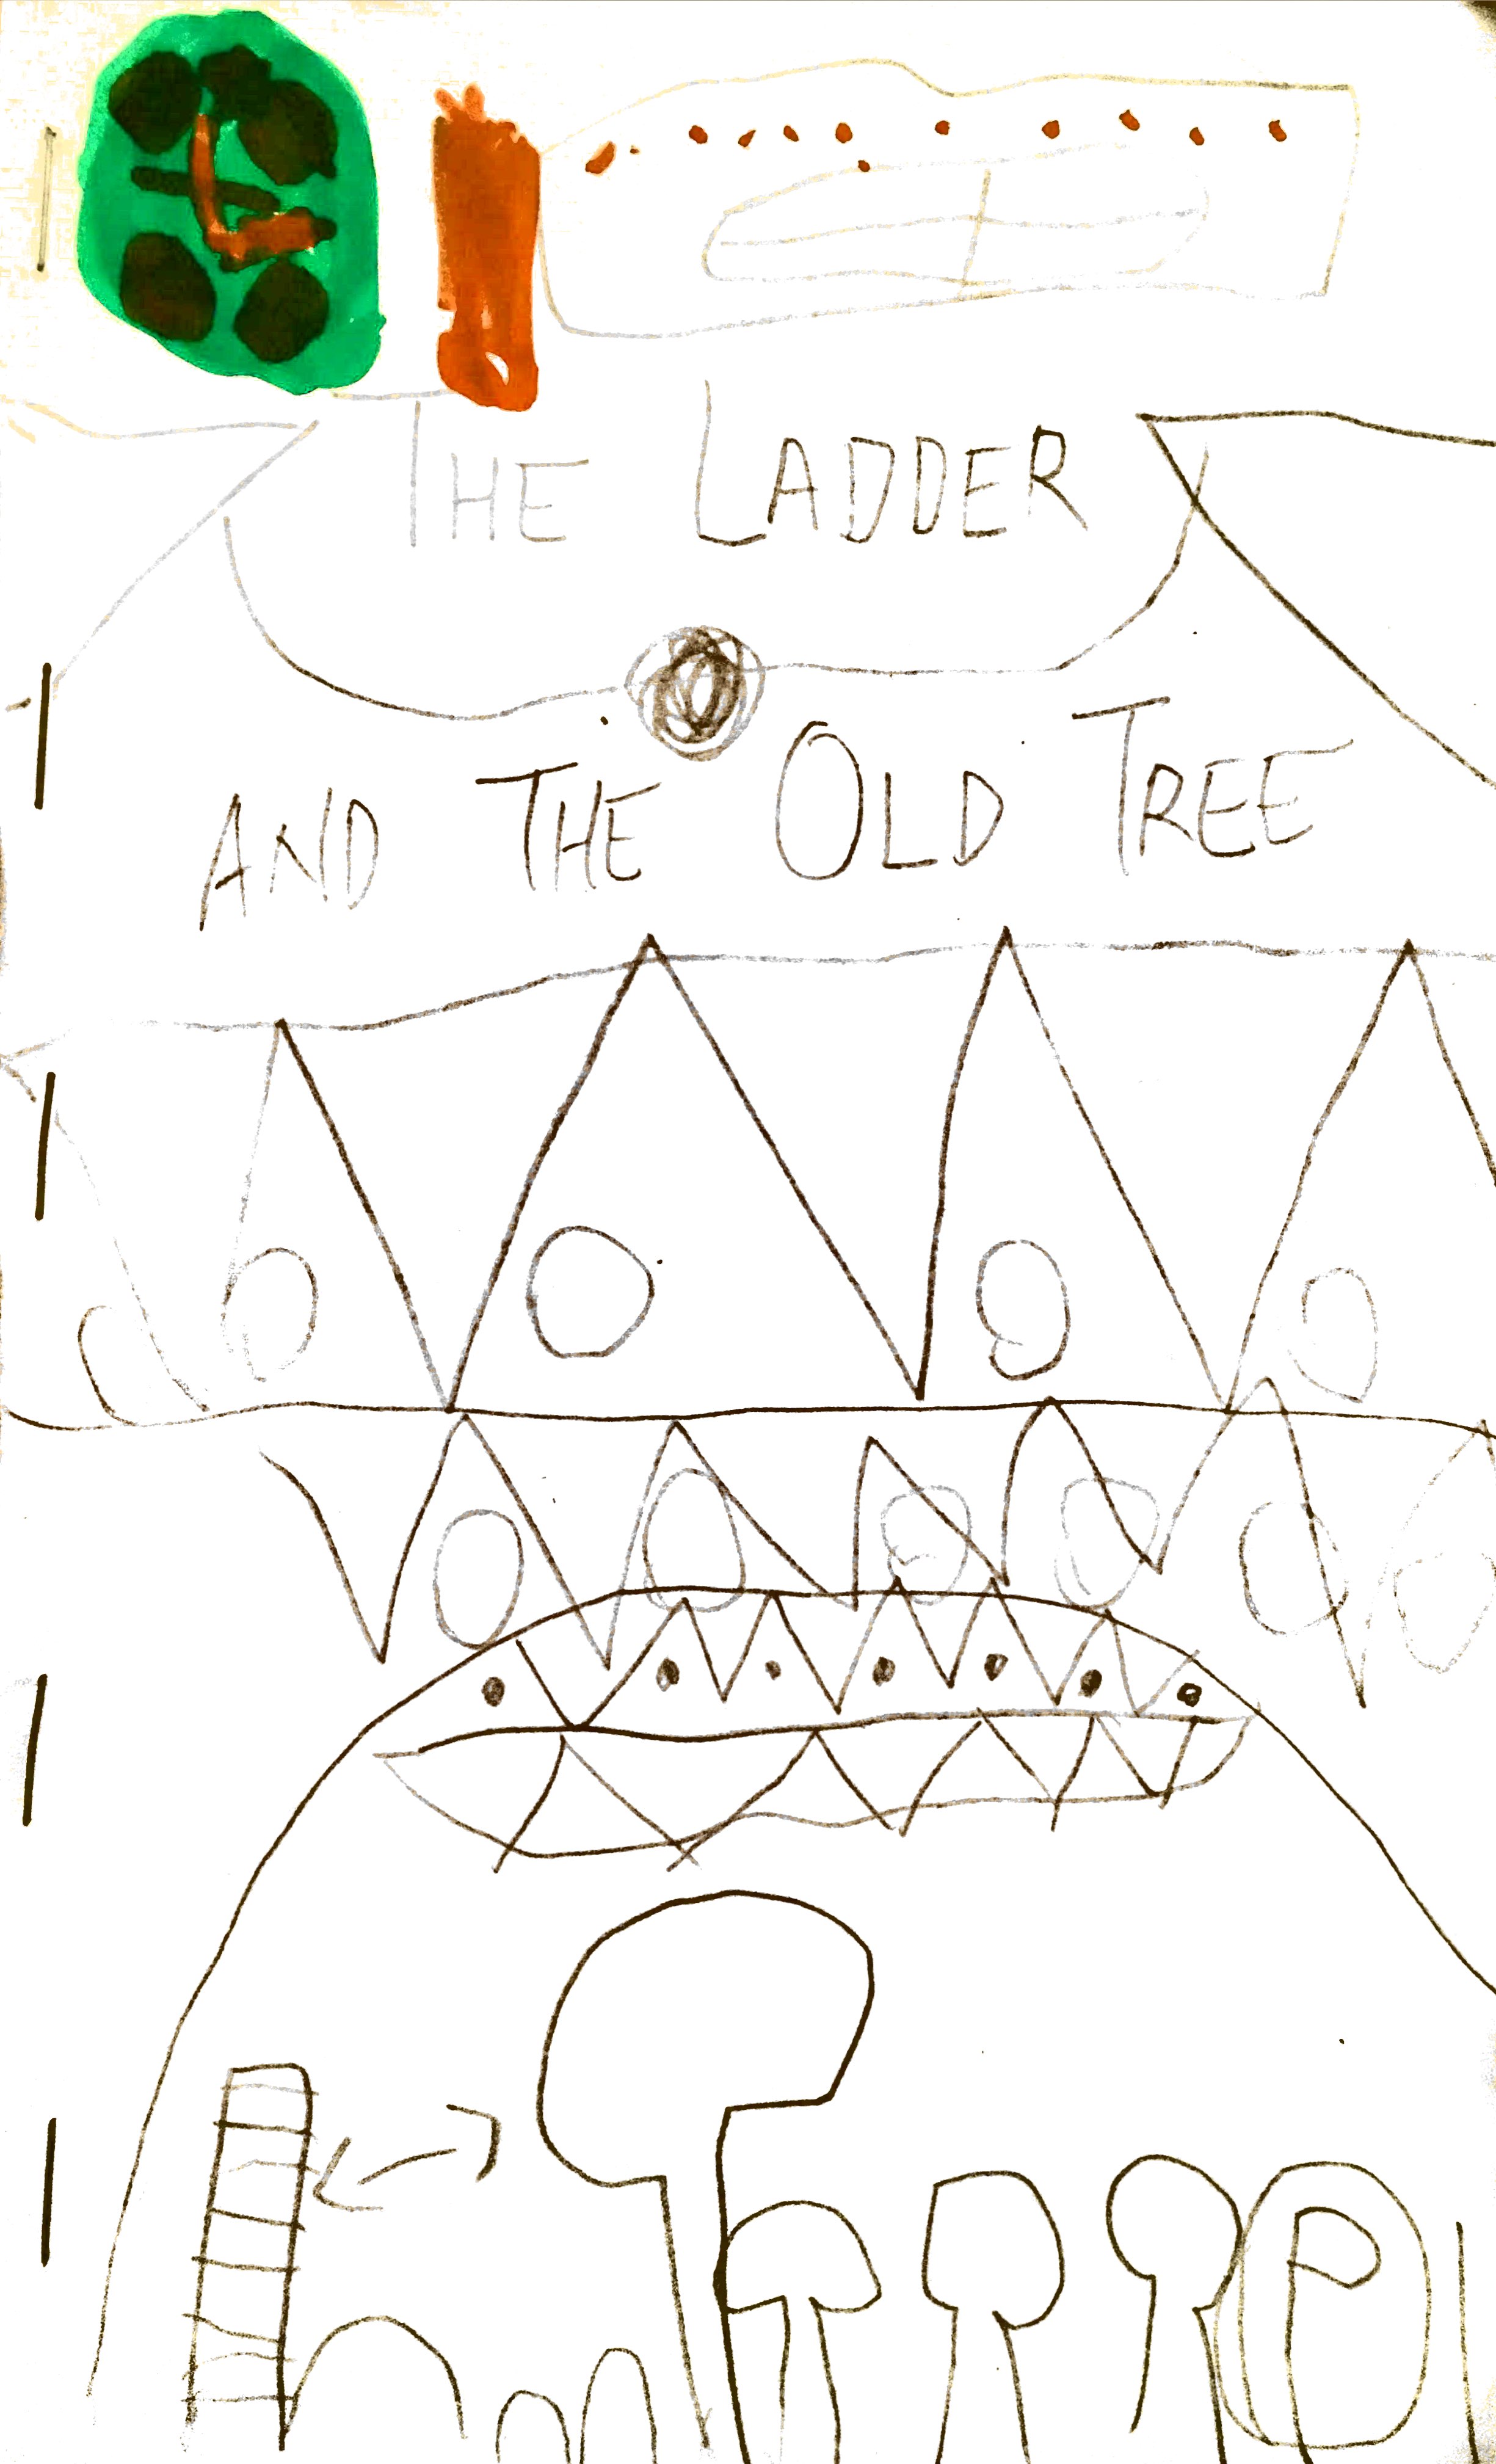 THE LADDER
AND THE OLD TREE
P